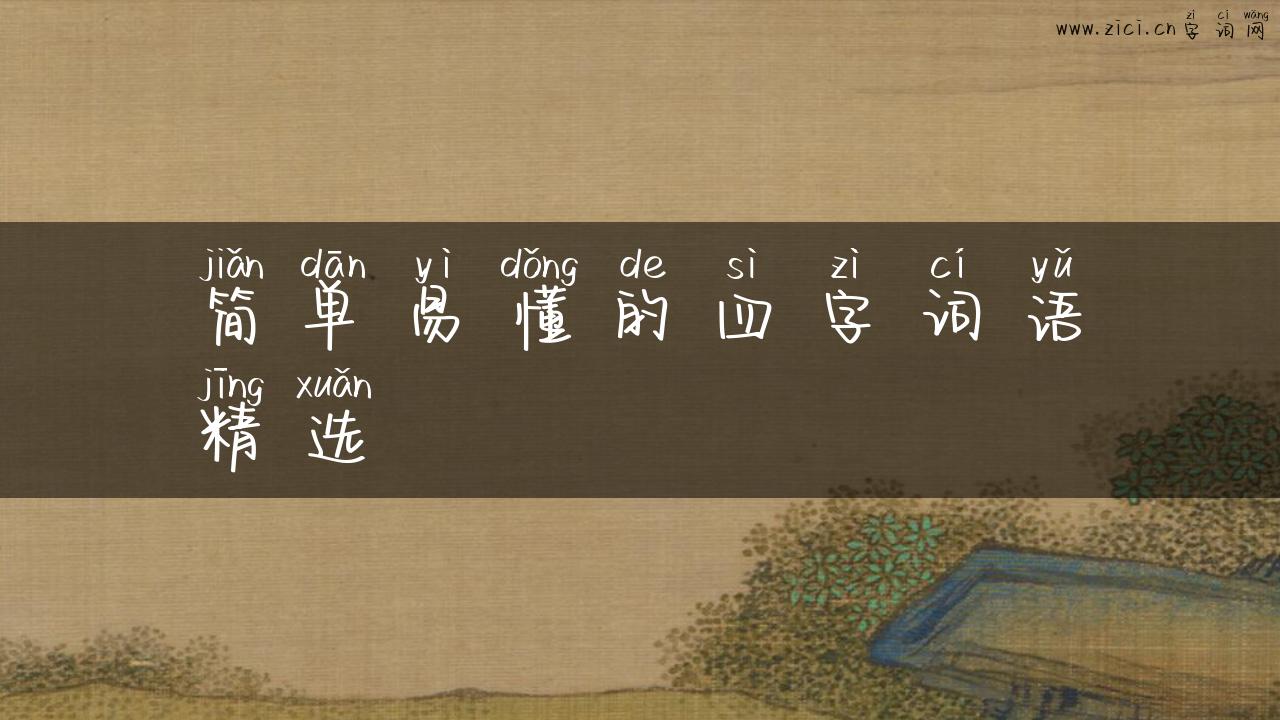 zì cí wǎng
www.zici.cn 字词网
jiǎn dān yì dǒng de sì zì cí yǔ
简单易懂的四字词语
jīng xuǎn
精选